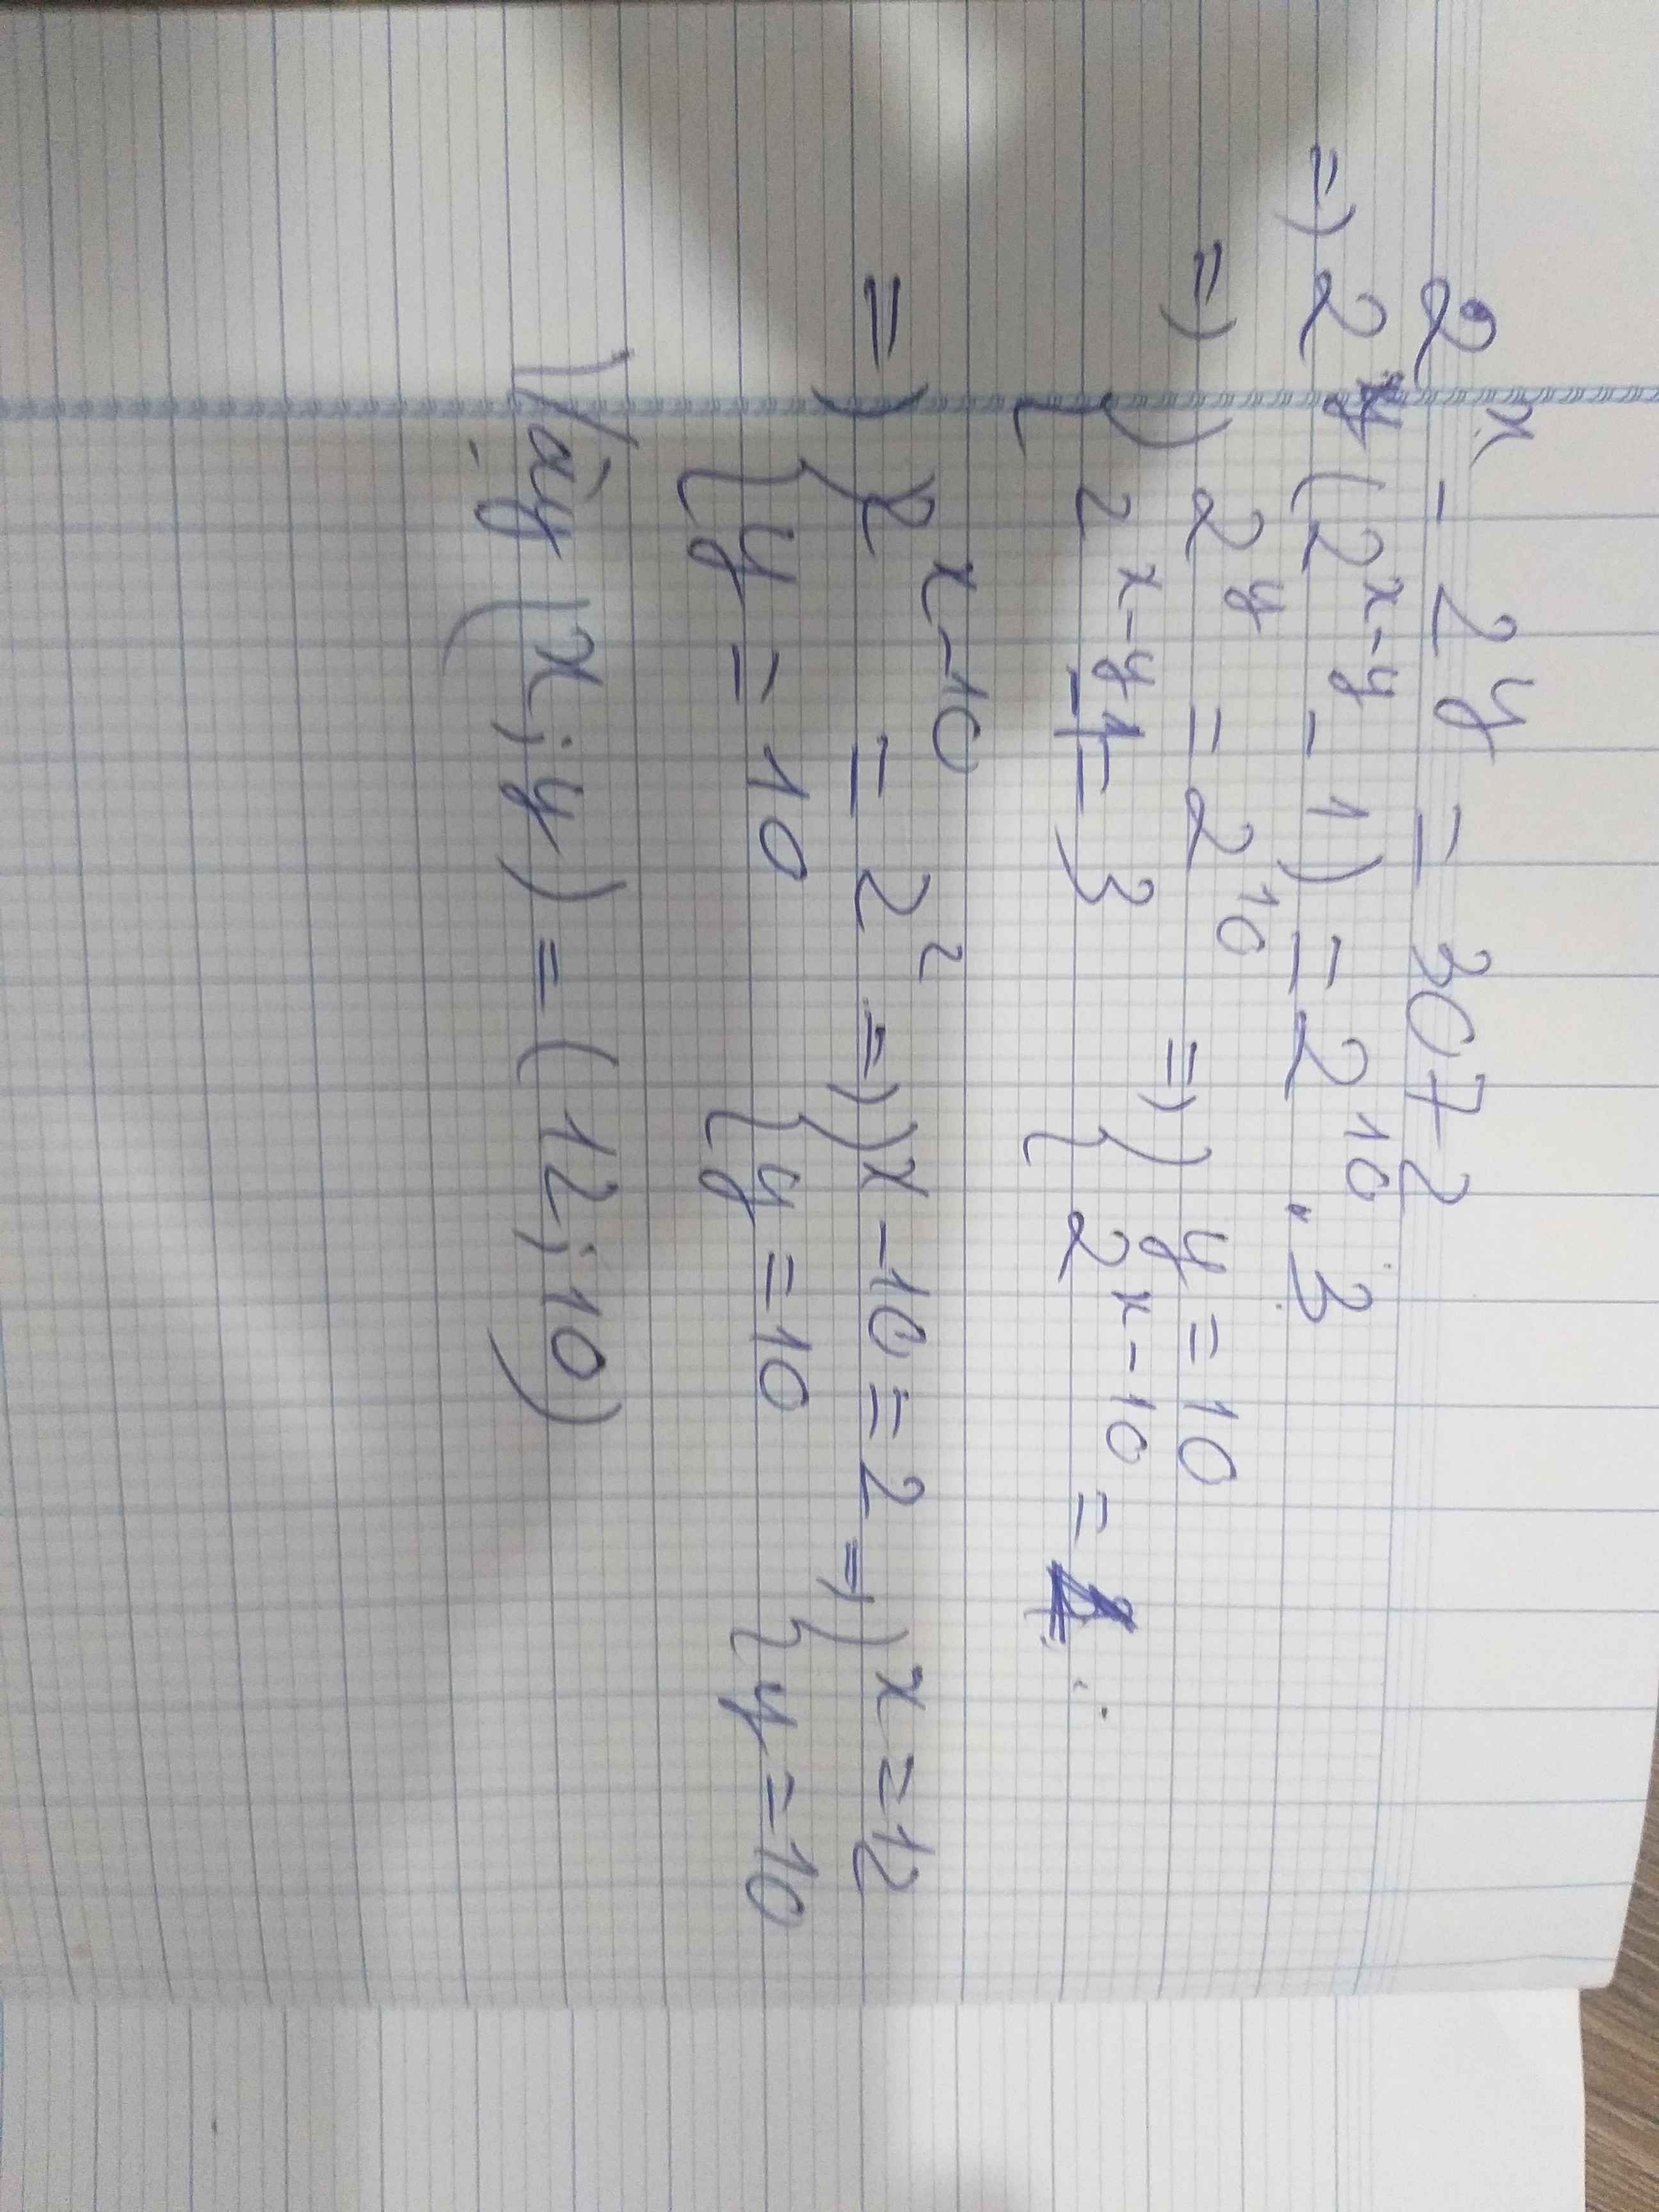 2^x - 2^y = 3072
=) 2^y (2^{x-y} - 1) = 2^{10} . 3
=) { 2^y = 2^{10} =) { y = 10
2^{x-y} - 1 = 3 2^{x-10} =
=) { 2^{x-10} = 2^2 =) { x - 10 = 2 =) { x = 12
y = 10 y = 10 y = 10
Vậy (x; y) = (12; 10)